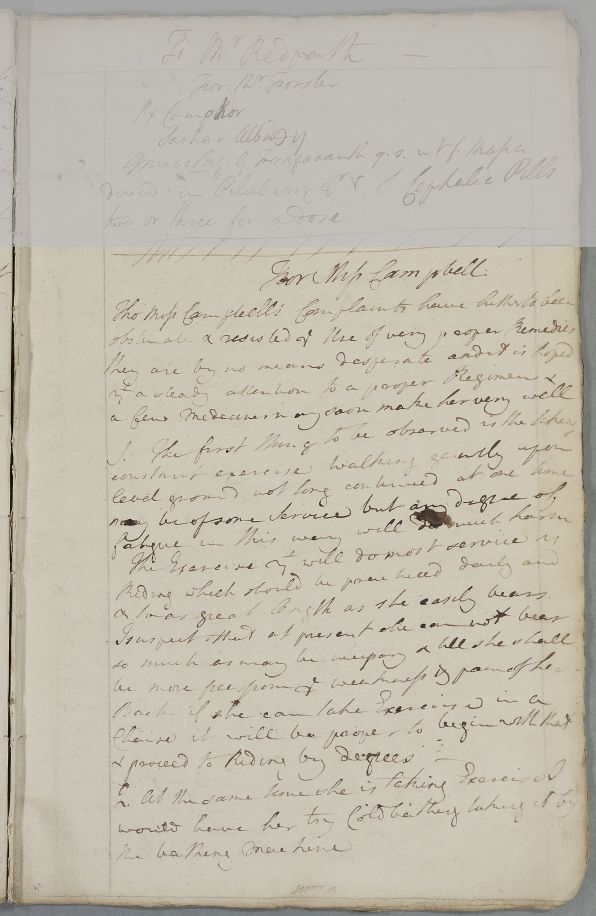 To Mr Redpath —
For Mr Forster
Rx Camphor
Sachar Alb
Tragacanth q. s. ut f. Massa
in Pilul Cephalic Pills
two or three for a dose
For Miss Campbell.
Tho Miss Campbells Complaints have hitherto been
obstinate & resisted ye Use of very proper Remedies
they are by no means desperate and it is hoped
yt a steady attention to a proper Regimen &
a few Medecines may soon make her very well
1. The first thing to be observed is the taking
constant exercise walking gently upon
level ground not long continued at one time
may be of some Service but any degree of
fatigue in this way will do much harm
The Exercise yt will do most service is
Riding which should be practised daily and
to as great length as she easily bears.
I suspect that at present she can not bear
so much as may be & till she shall
be more free from ye weakness & pain of her
Back if she can take Exercise in a
Chaise it will be proper to begin with that
& proceed to Riding by degrees
2. At the same time she is taking Exercise I
would have her try Cold bathing taking it by
the bathing machine